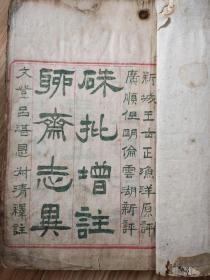 新城王士正漁洋原評
廣順但明倫雲湖新評
硃批增註
聊齋志異
文登呂湛恩叔清釋註